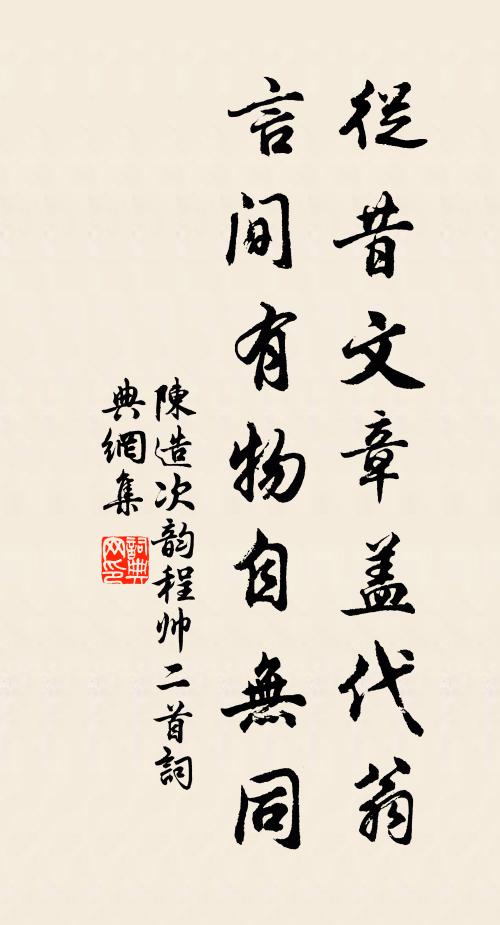 從昔文章盖代翁
言間有物自無同
陳造次韵程帅二首詞
典網集
詞典网印